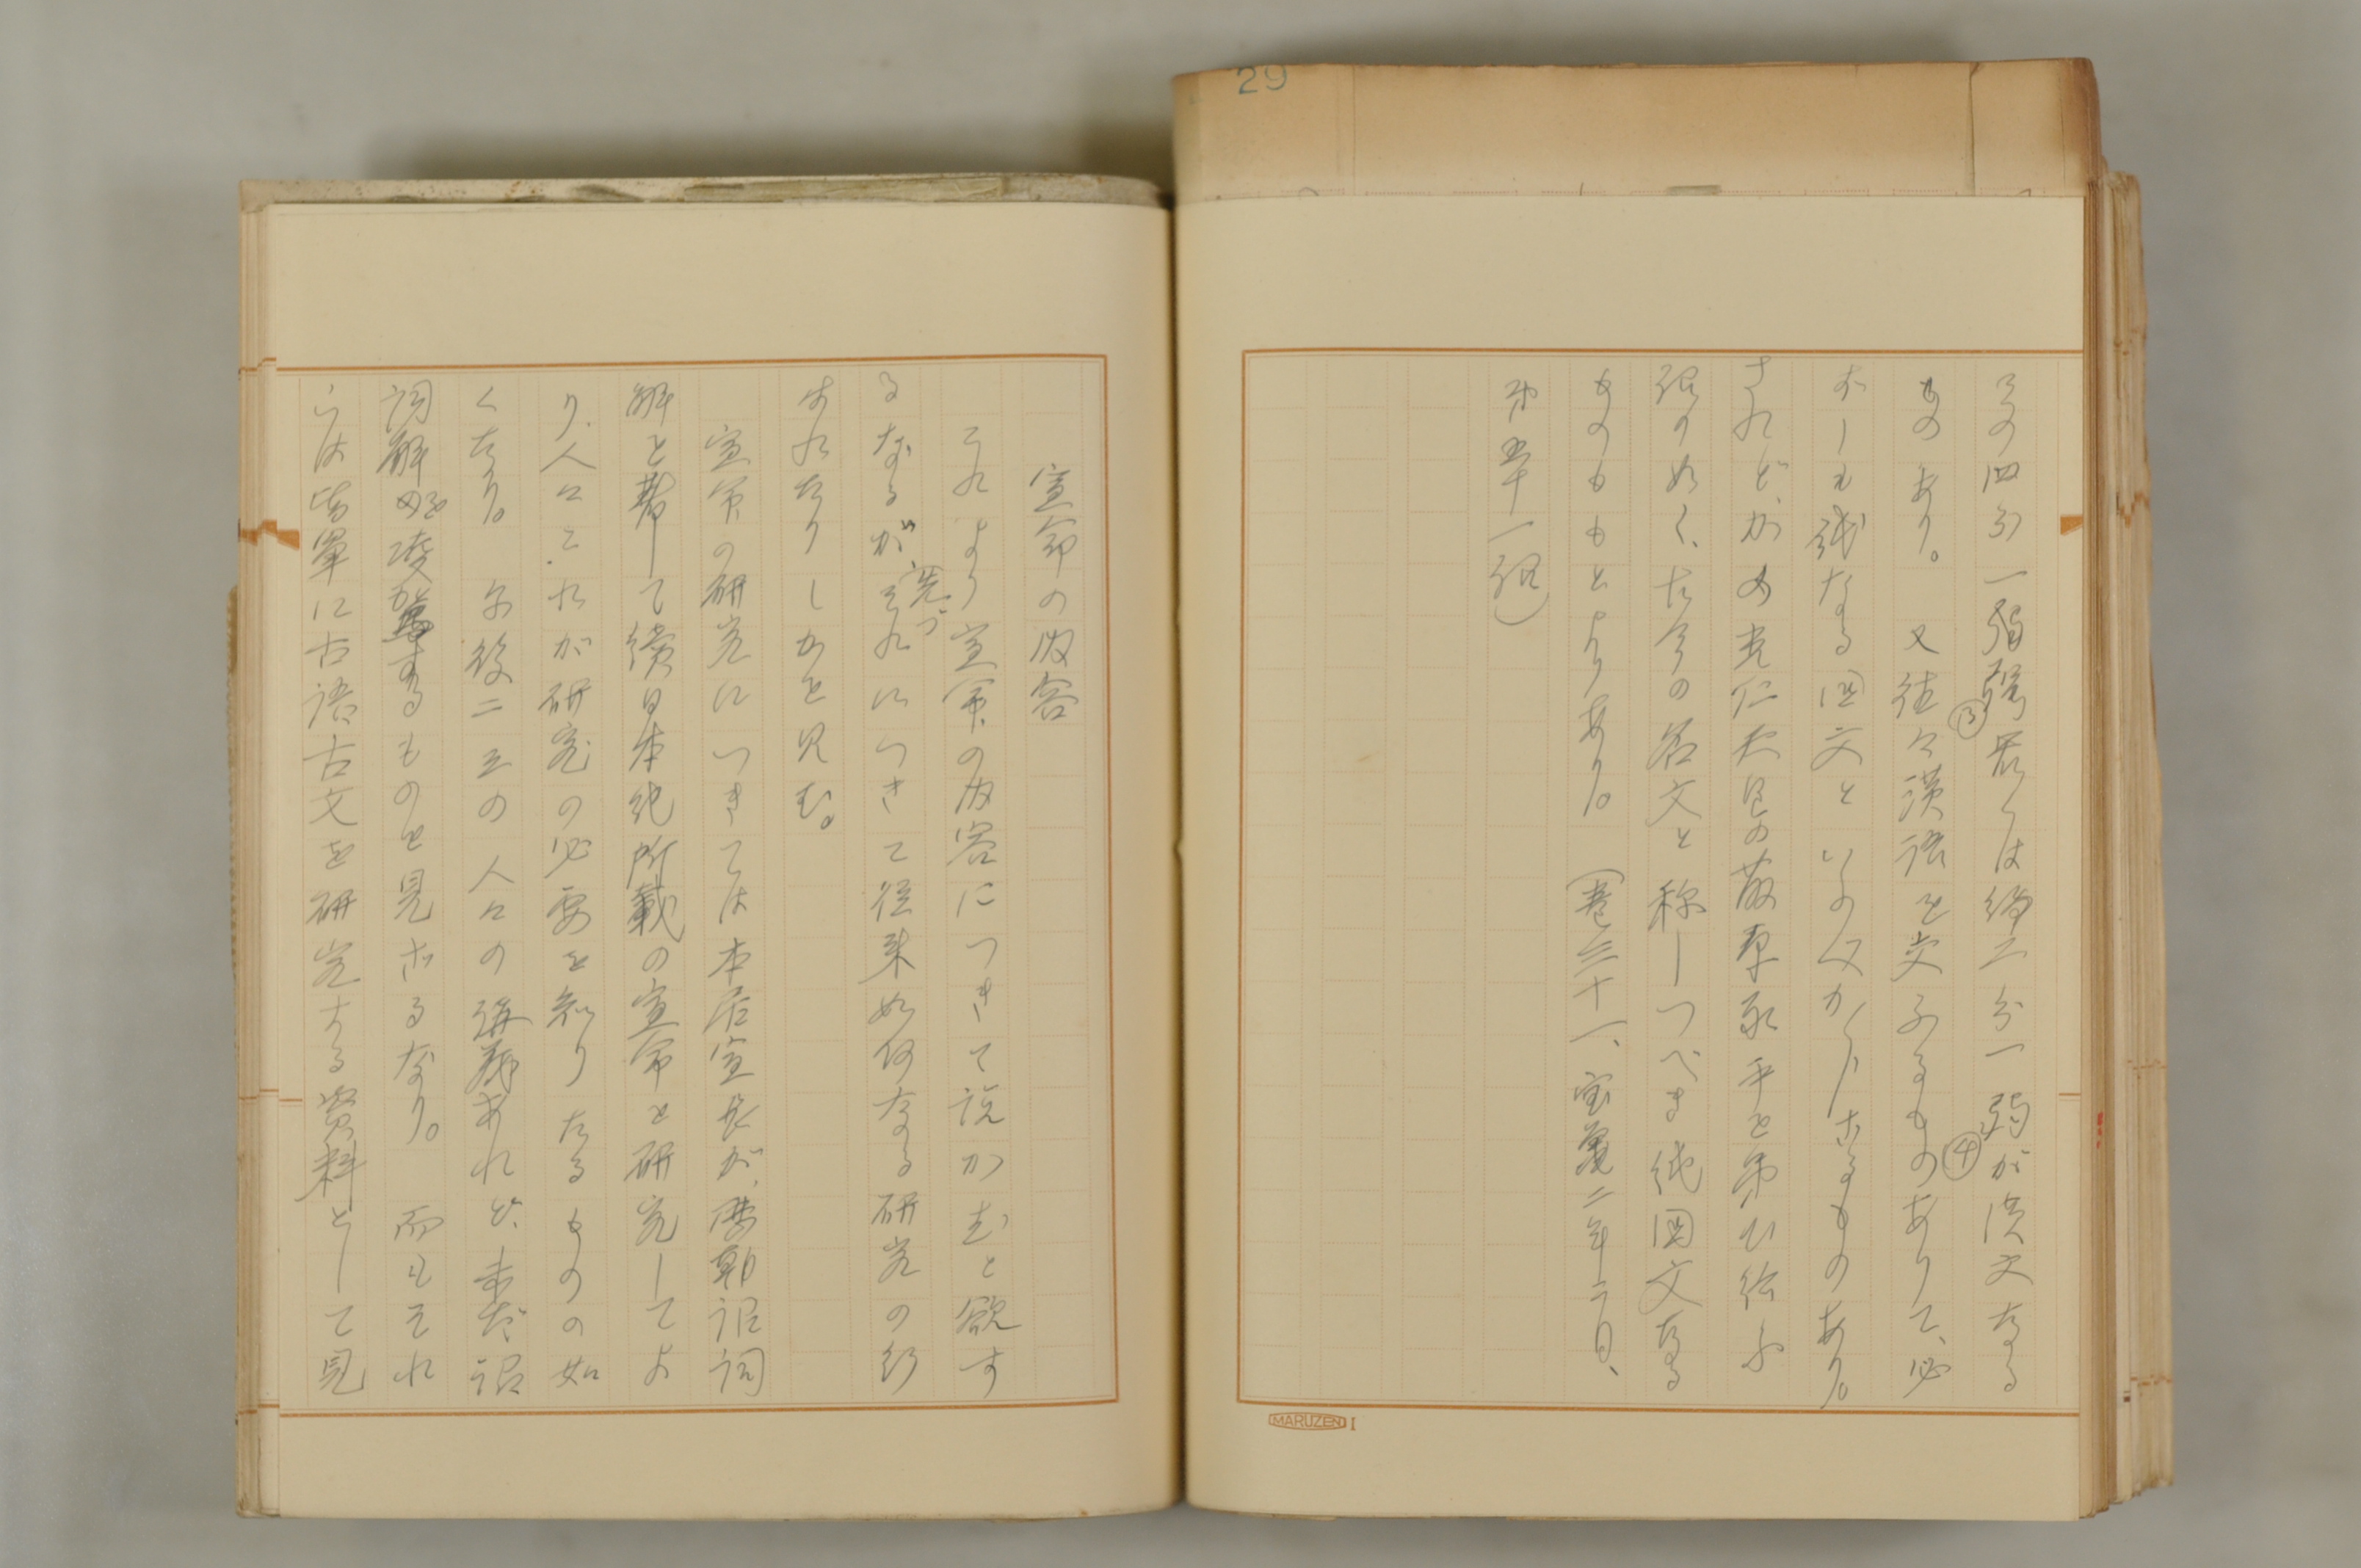 29
その四分一弱③若くは約二分一弱④が漢文なる
ものあり。又往々漢語を交ふるものありて、必
ずしも純なる国文といふべからざるものあり。
されど、かの光仁天皇の藤原永手を弔ひ給ふ
詔の如く、古今の名文と称しつべき純国文なる
ものももとよりあり。(巻三十一、宝亀二年二月、
第五十一詔)
MARUZEN I
宣命の内容
これより宣命の内容につきて説かむと欲す
るなるが、先づそれにつきて従来如何なる研究の行
はれたりしかを見む。
宣命の研究につきては本居宣長が、歴朝詔詞
解を著して続日本紀所載の宣命を研究してよ
り、人々これが研究の必要を知りたるものの如
くなり。尓後二三の人々の講義あれど、未だ詔
詞解を凌駕するものを見ざるなり。而もそれ
らは皆単に古語古文を研究する資料として見